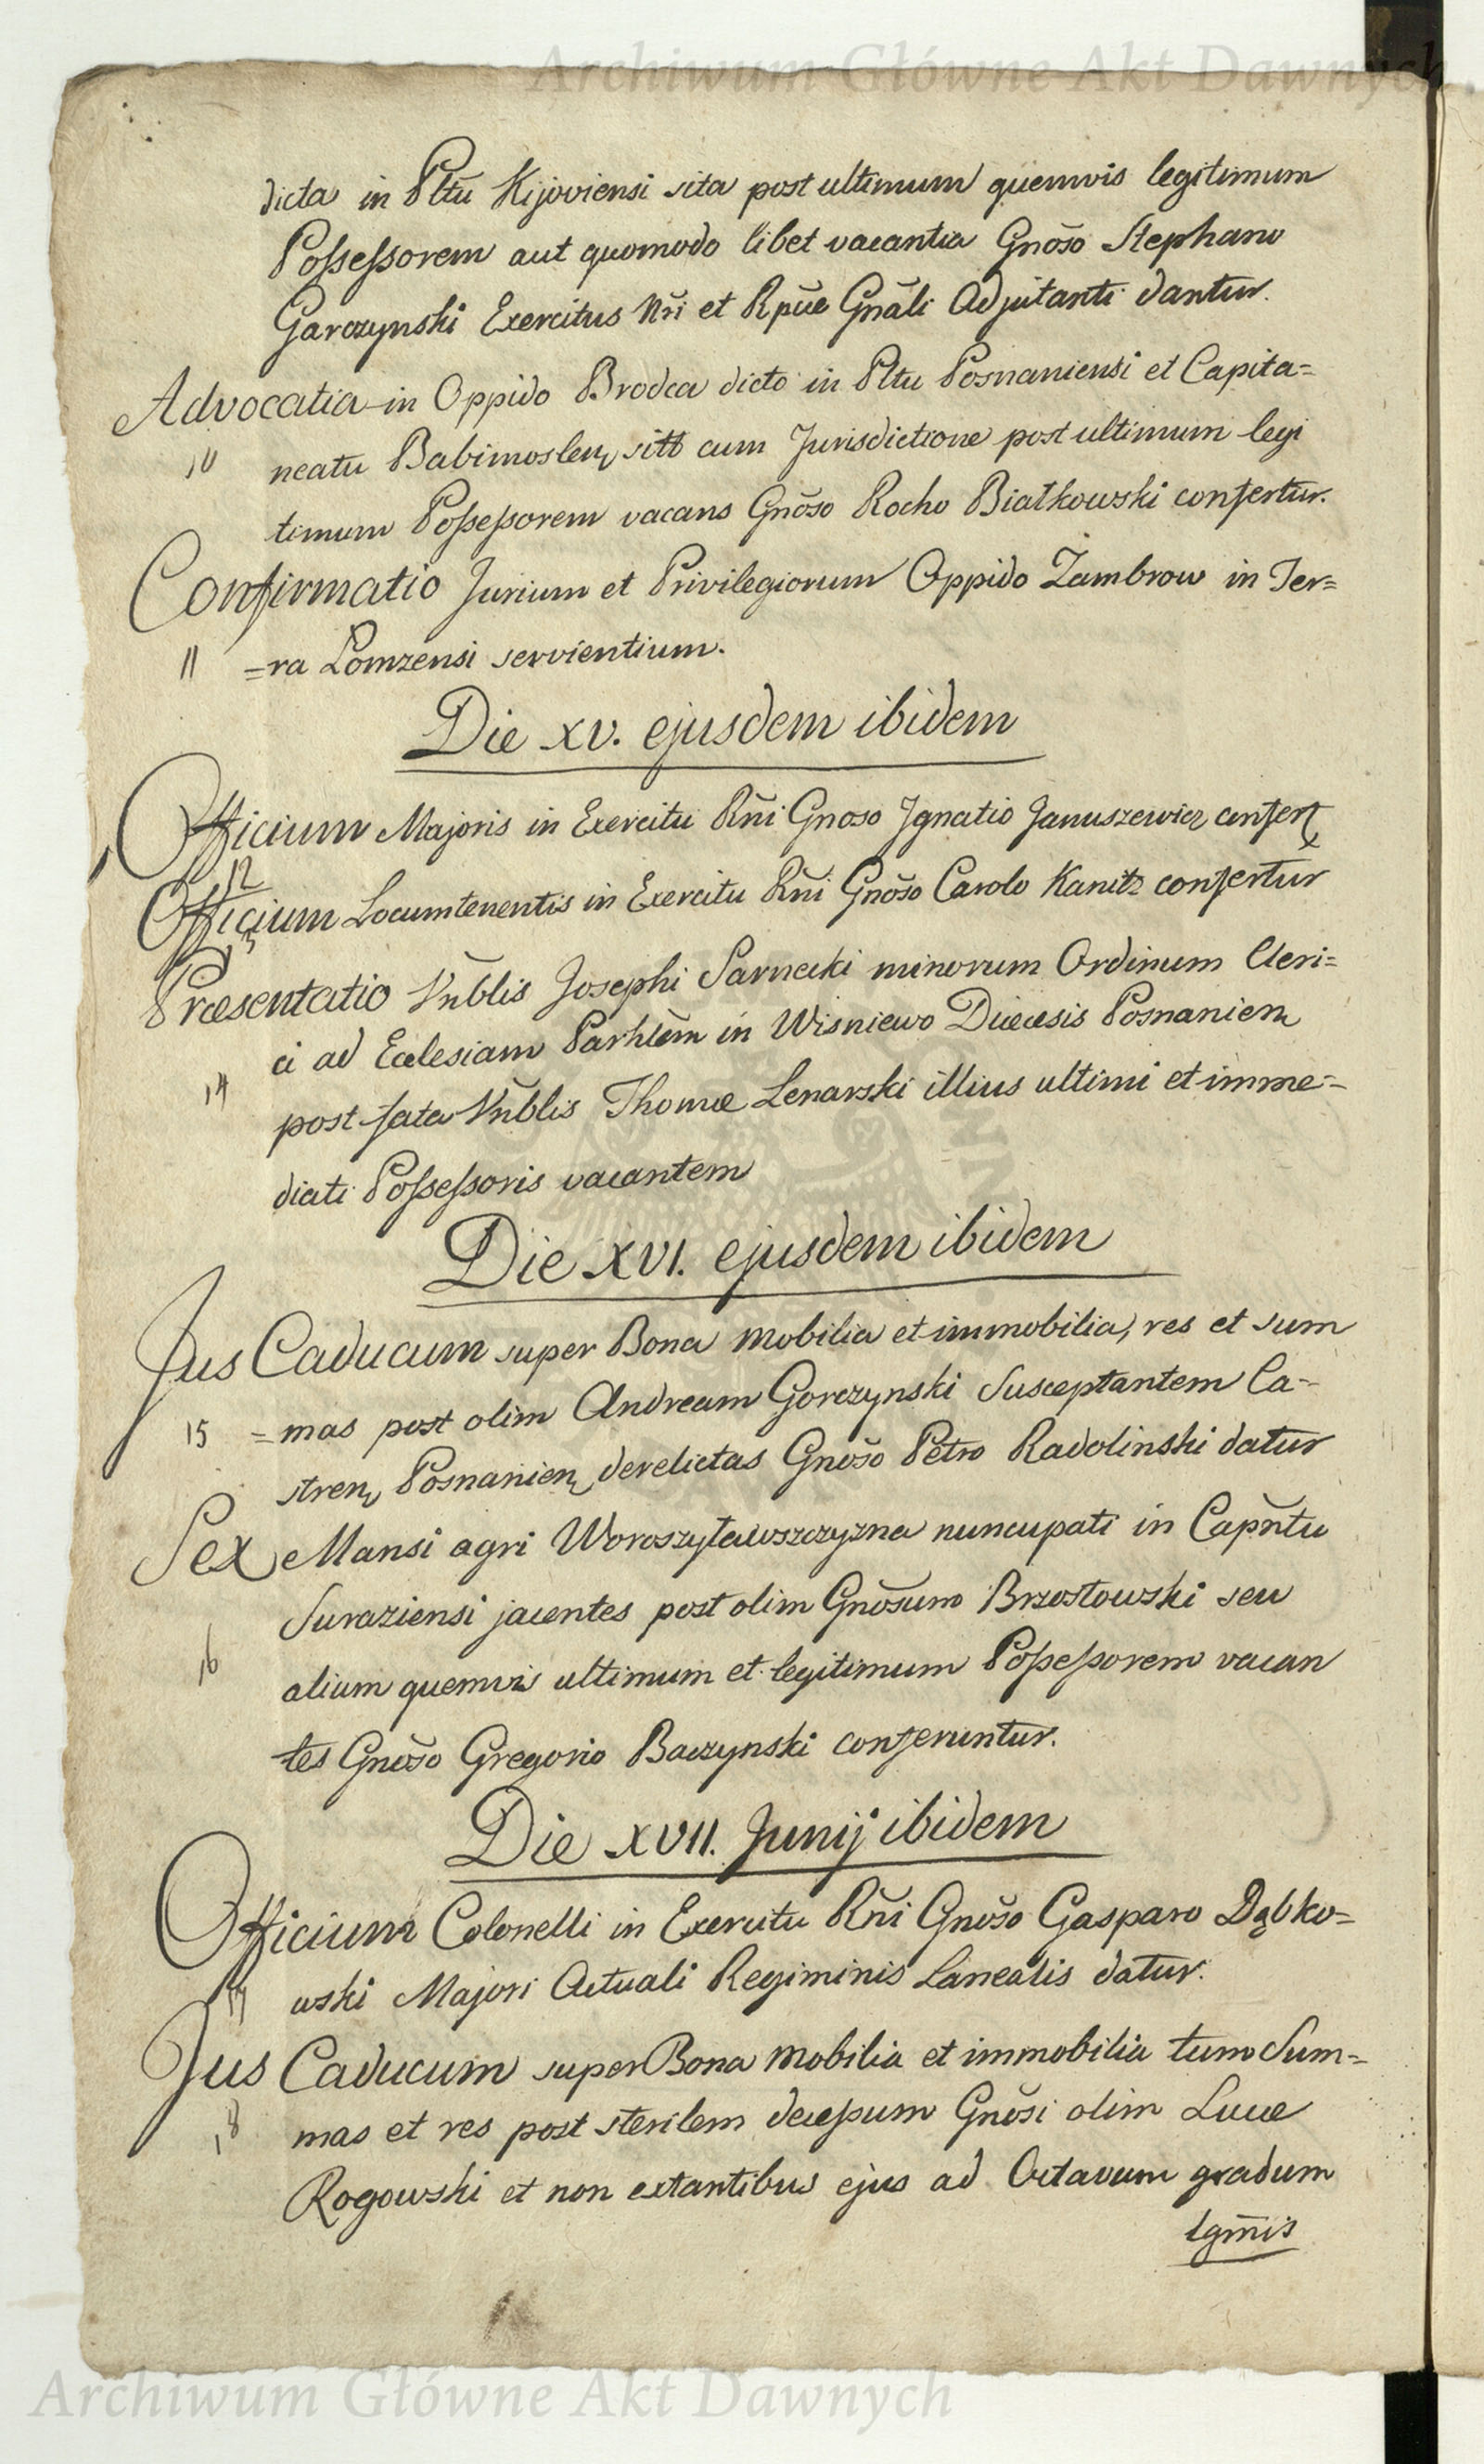 Archiwum Główne Akt Dawnych
dicta in Pltu Kijoviensi sita post ultimum quemvis legitimum
Possessorem aut quomodo libet vacantia Gnõso Stephano
Garczynski Exercitus Nri et Rpũe Gnãli Adjutanti dantur.
Advocatia in Oppido Brodca dicto in Pltu Posnaniensi et Capita=
10 neatu Babimosten sitt cum Jurisdictione post ultimum legi
timum Possessorem vacans Gnõso Rocho Białkowski confertur.
Confirmatio Jurium et Privilegiorum Oppido Zambrow in Ter=
11 =ra Lomzensi servientium.
Die XV. ejusdem ibidem
Officium Majoris in Exercitu Rñi Gnoso Jgnatio Januszewicz confert
12
Officium Locumtenentis in Exercitu Rñi Gnõso Carolo Kanitz confertur
13
Præsentatio Vñblis Josephi Sarnecki minorum Ordinum Cleri=
ci ad Ecclesiam Parhlem in Wisniewo Diæcesis Posnanien
14 post fata Vñblis Thomæ Lenarski illius ultimi et imme=
diati Possessoris vacantem
Die XVI. ejusdem ibidem
Jus Caducum super Bona mobilia et immobilia, res et sum
15 =mas post olim Andream Gorczynski Susceptantem Ca=
stren Posnanien derelictas Gnõso Petro Radolinski datur
Sex Mansi agri Woroszyławszczyzna nuncupati in Capñtu
Suraziensi jacentes post olim Gnõsum Brzostowski seu
16 alium quemvis ultimum et legitimum Possessorem vacan
tes Gnõso Gregorio Baczynski conferuntur.
Die XVII. Junij ibidem
Officium Colonelli in Exercitu Rñi Gnõso Gasparo Dąbko=
17 wski Majori Actuali Regiminis Lanealis datur.
Jus Caducum super Bona mobilia et immobilia tum Sum=
18 mas et res post sterilem decessum Gnõsi olim Lucæ
Rogowski et non extantibus ejus ad Octavum gradum
Lgmis
Archiwum Główne Akt Dawnych